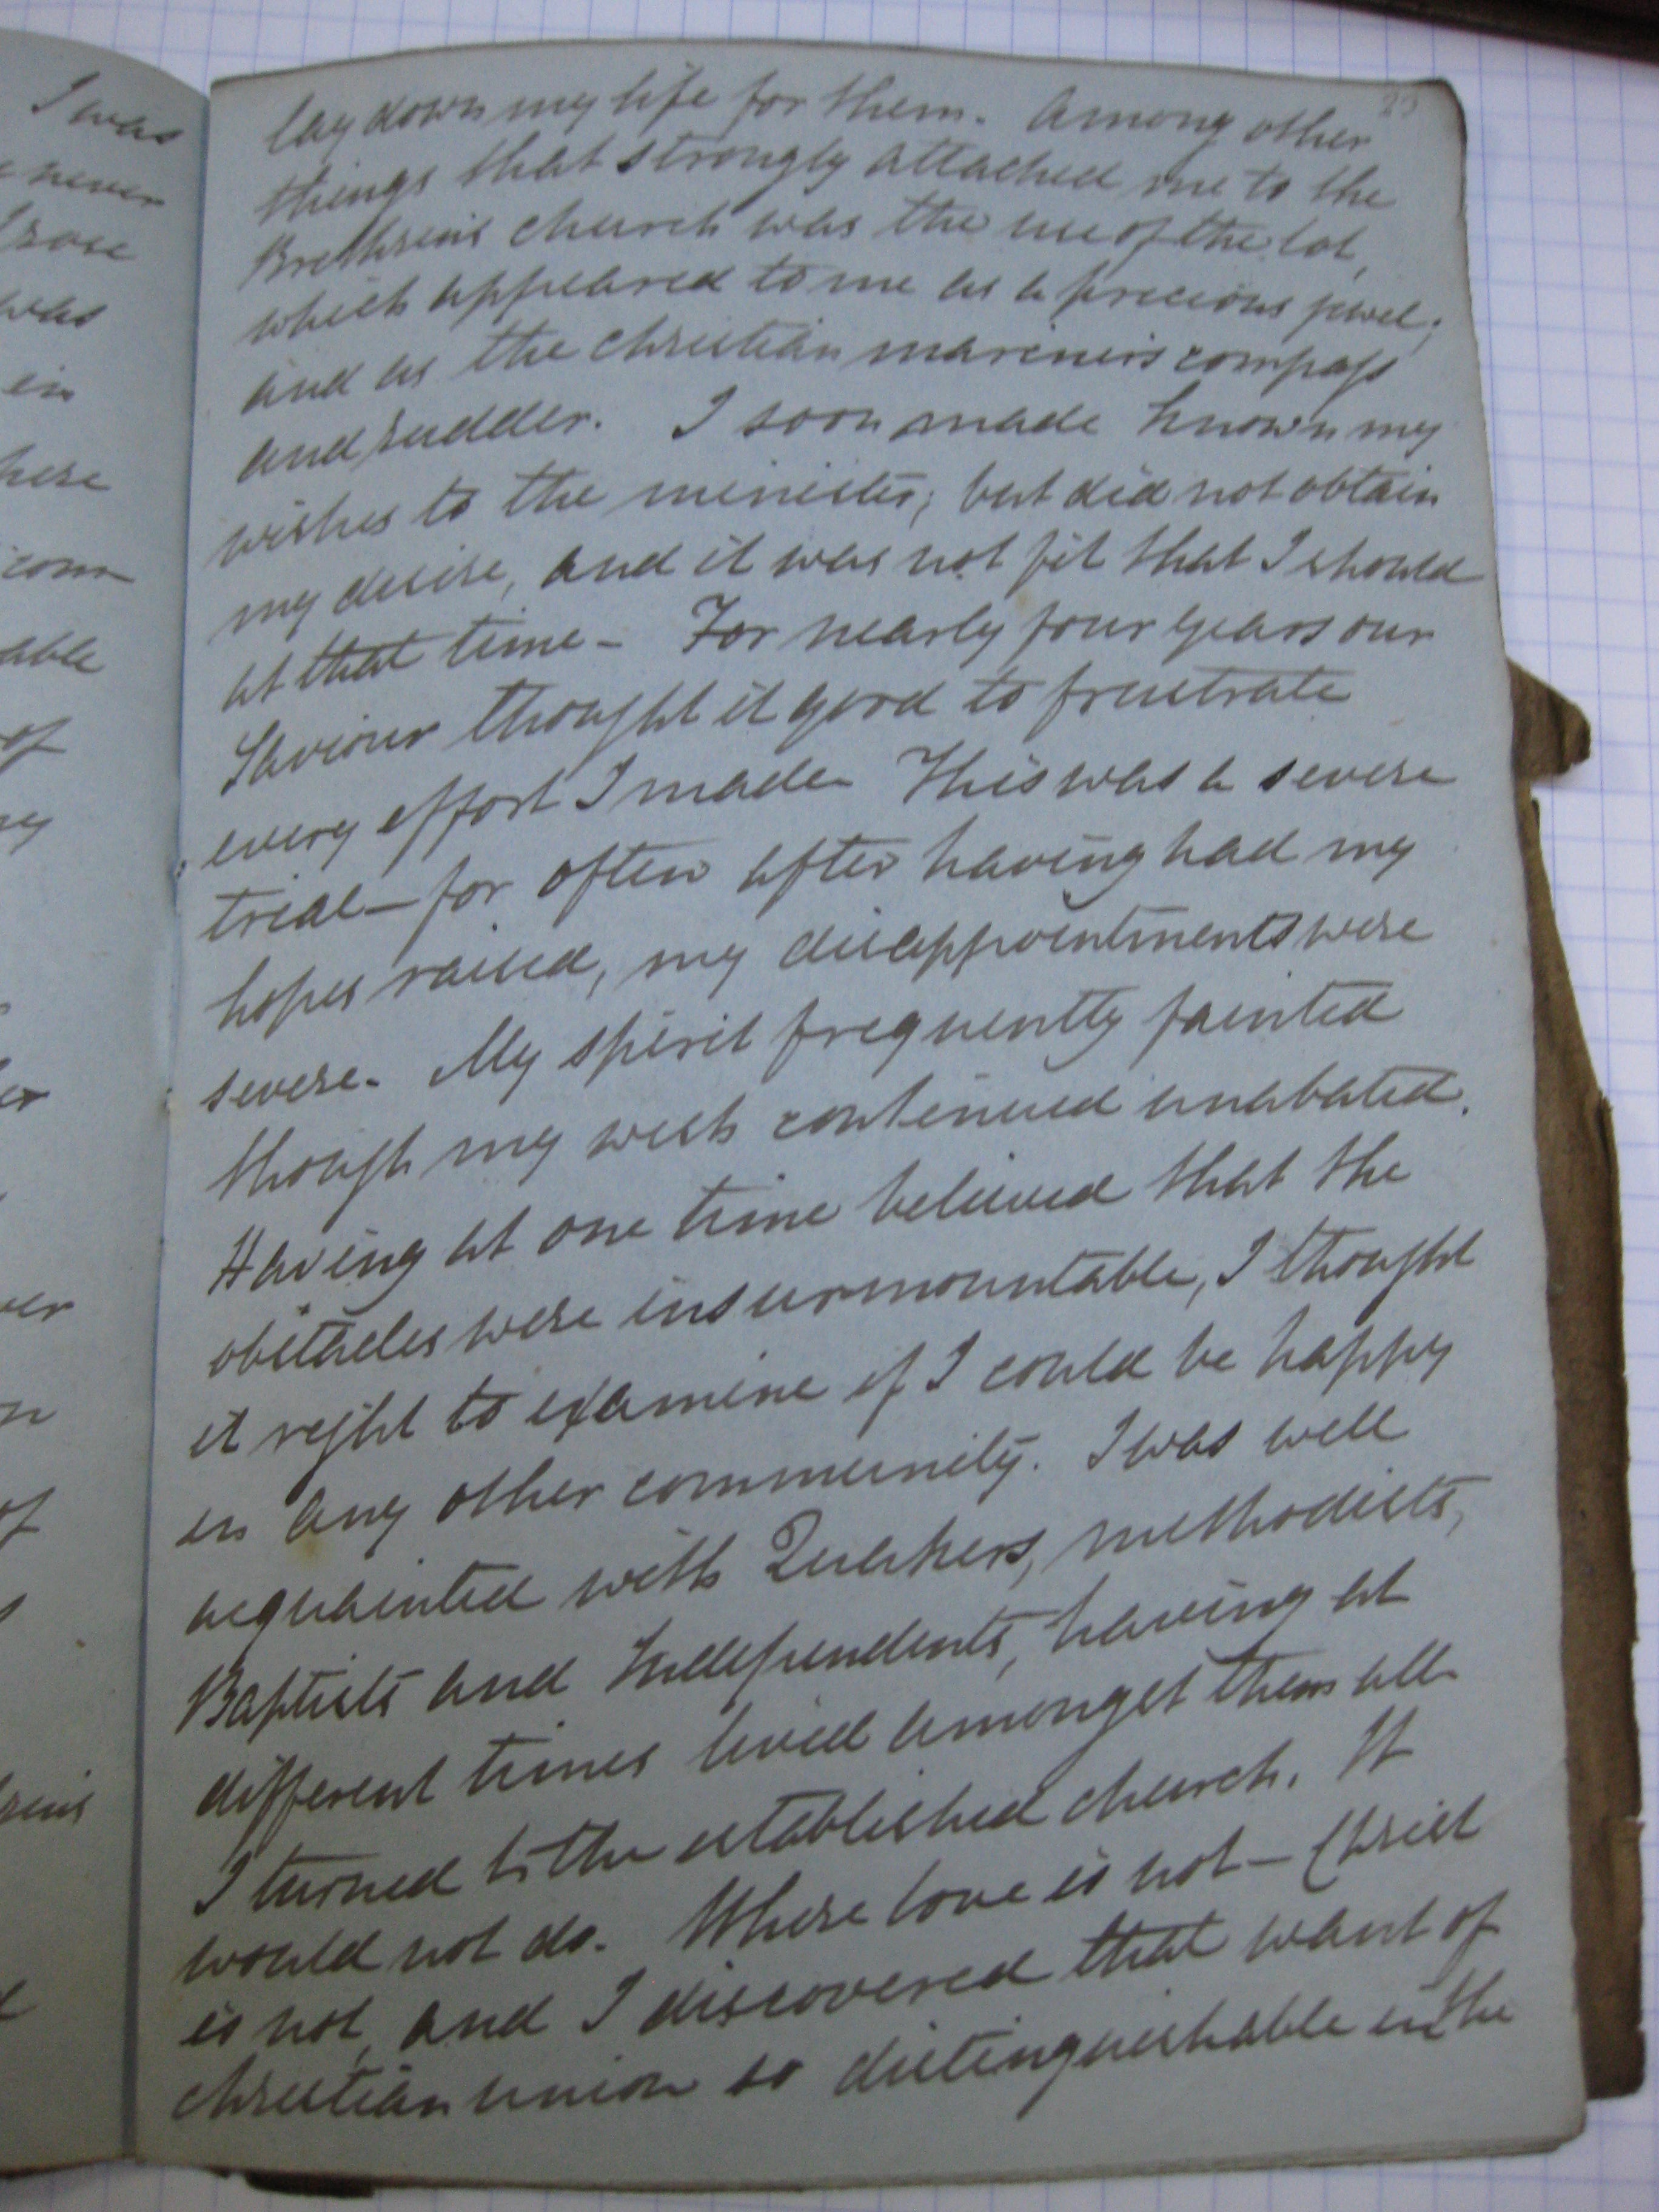 I was
never
rose
was
in
here
com
able
of
er
n
of
lay down my life for them. Among other
things that strongly attached me to the
Brethrens church was the use of the lot,
which appeared to me as a precious jewel;
and as the christian mariners compass
and rudder. I soon made known my
wishes to the minister; but did not obtain
my desire, and it was not fit that I should
at that time – For nearly four years our
Saviour thought it good to frustrate
every effort I made This was a severe
trial – for often after having had my
hopes raised, my disappointments were
severe. My spirit frequently fainted
though my wish continued unabated.
Having at one time believed that the
obstacles were insurmountable, I thought
it right to examine if I could be happy
in any other community. I was well
acquainted with Quakers, methodists,
Baptists and Independents, having at
different times lived amongst them all
I turned to the established church. It
would not do. Where love is not – Christ
is not, and I discovered that want of
christian union so distinguishable in the